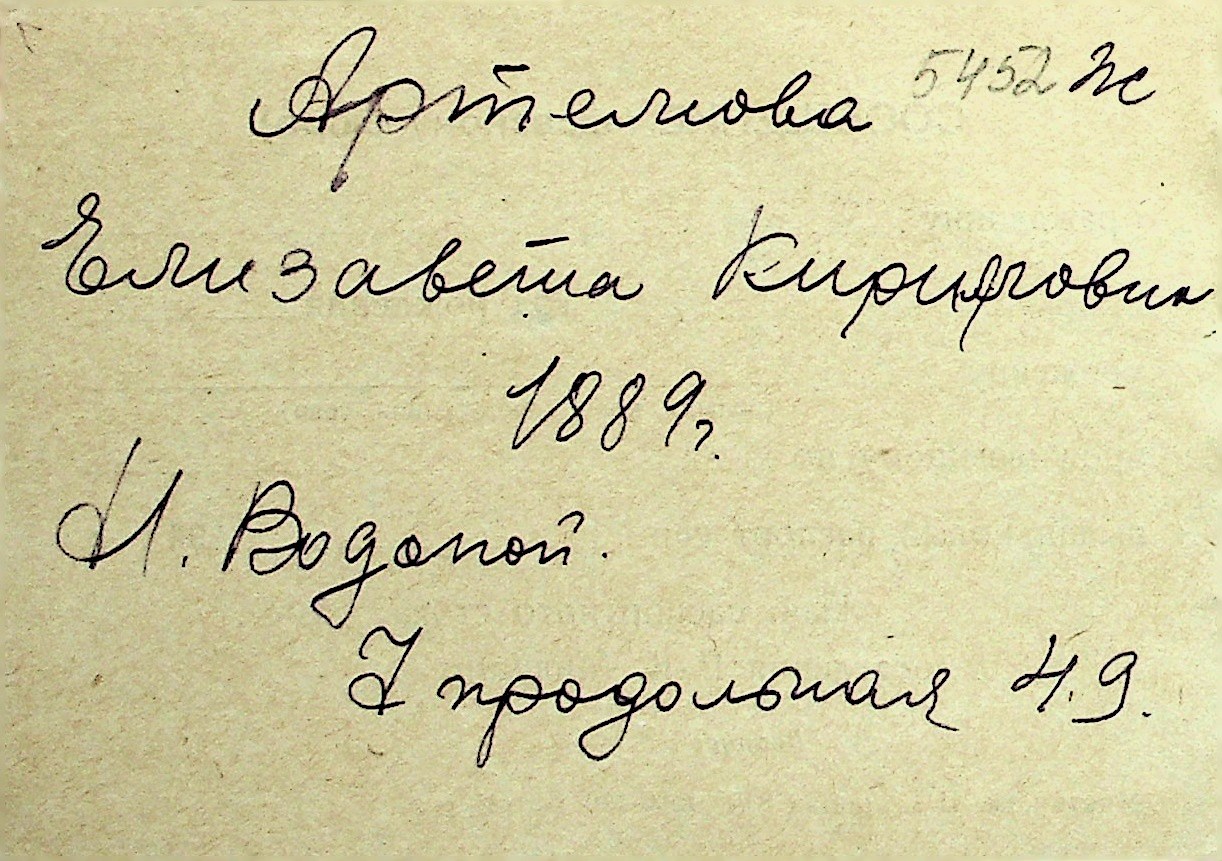 Артемова 5452 ж
Елизавета Кирилловн
1889г.
М. Водопой.
7 продольная 49.